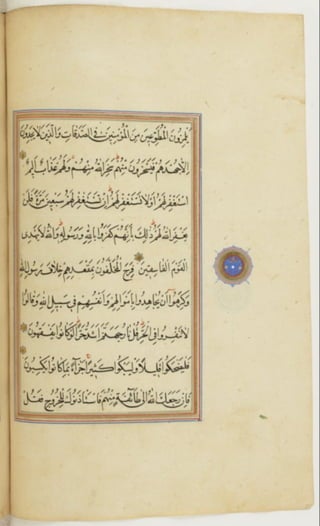 يلمزون المطوعين من المؤمنين في الصدقات والذين لا يجدون
إلا جهدهم فيسخرون منهم سخر الله منهم ولهم عذاب أليم
استغفر لهم أو لا تستغفر لهم إن تستغفر لهم سبعين مرة فلن
يغفر الله لهم ذلك بأنهم كفروا بالله ورسوله والله لا يهدي
القوم الفاسقين فرح المخلفون بمقعدهم خلاف رسول الله
وكرهوا أن يجاهدوا بأموالهم وأنفسهم في سبيل الله وقالوا
لا تنفروا في الحر قل نار جهنم أشد حرا لو كانوا يفقهون
فليضحكوا قليلا وليبكوا كثيرا جزاء بما كانوا يكسبون
فإن رجعك الله إلى طائفة منهم فاستأذنوك للخروج فقل